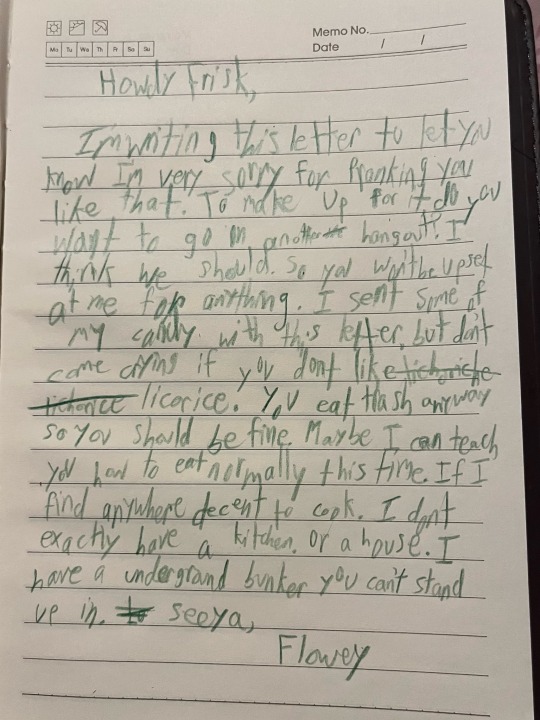 Memo No.
Mo Tu We Th Fr Sa Su
Date / /
Howdy Frisk,
I'm writing this letter to let you
know I'm very sorry for Pranking you
like that. To make up for it do you
want to go on another hangout? I
think we should. So you won't be upset
at me for anything. I sent some of
my candy with this letter, but don't
come crying if you dont like
licorice. You eat trash anyway
so you should be fine. Maybe I can teach
you how to eat normally this time. If I
find anywhere decent to cook. I dont
exactly have a kitchen. Or a house. I
have a undergrand bunker you can't stand
up in. seeya,
Flowey